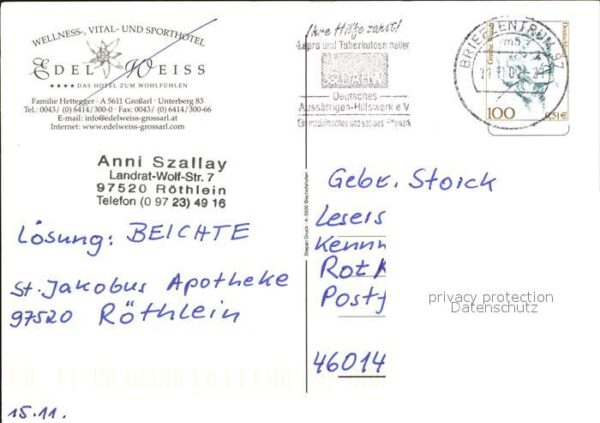 WELLNESS-, VITAL- UND SPORTHOTEL
EDELWEISS
★★★★ DAS HOTEL ZUM WOHLFÜHLEN
Familie Hettegger · A 5611 Großarl · Unterberg 83
Tel.: 0043/ (0) 6414/300-0 · Fax: 0043/ (0) 6414/300-66
E-mail: info@edelweiss-grossarl.at
Internet: www.edelweiss-grossarl.com
Anni Szallay
Landrat-Wolf-Str. 7
97520 Röthlein
Telefon (0 97 23) 49 16
Lösung: BEICHTE
St. Jakobus Apotheke
97520 Röthlein
15.11.
Ihre Hilfe zählt!
Lepra und Tuberkulosen heilen
Deutsches
Aussätzigen-Hilfswerk e V
BRIEFZENTRUM 97
100
0,51€
Gebr. Storck
Lesers
Kennn
Rot
Postf
46014
privacy protection
Datenschutz